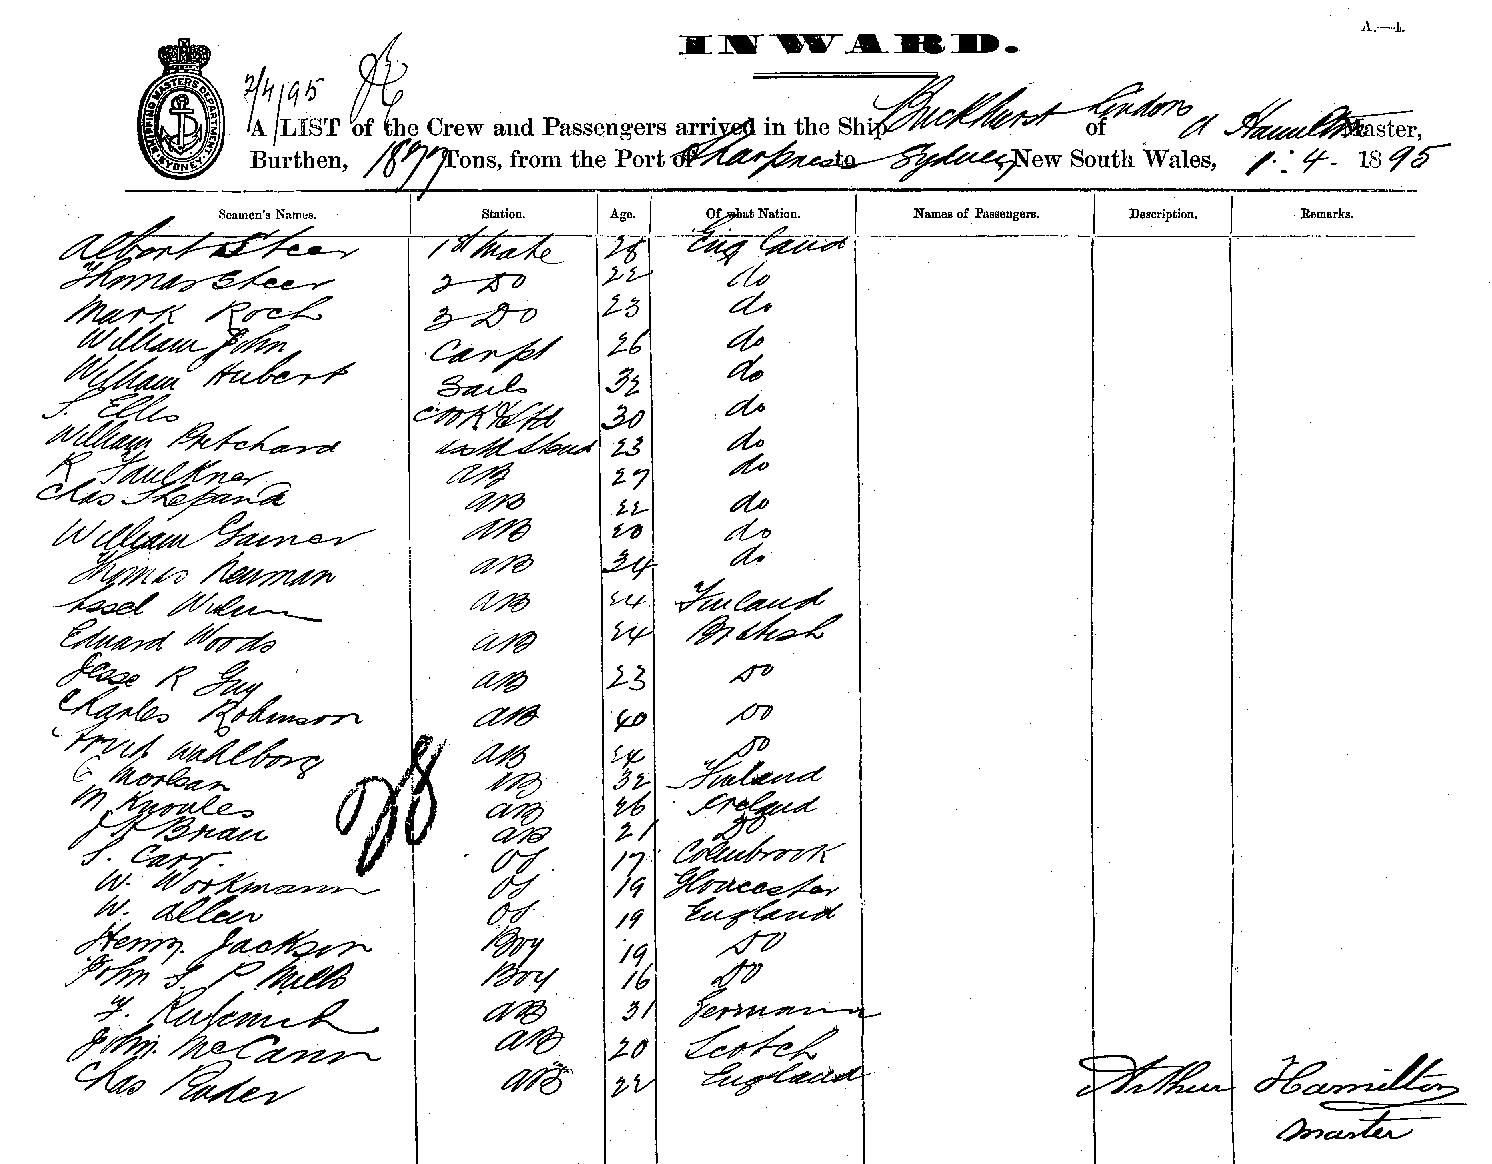 A.—4.
INWARD.
SHIPPING MASTERS DEPARTMENT SYDNEY
2/4/95
A LIST of the Crew and Passengers arrived in the Ship Buckhurst of London A Hamilton Master,
Burthen, 1877 Tons, from the Port of Sharpness to Sydney, New South Wales, 1 : 4 - 1895
Seamen's Names. Station. Age. Of what Nation. Names of Passengers. Description. Remarks.
Albert Steer 1st Mate 28 England
Thomas Steer 2 Do 22 do
Mark Roch 3 Do 23 do
William John Carpt 26 do
William Hubert Sails 32 do
S. Ellis Cook & Std 30 do
William Pritchard 23 do
R Faulkner AB 27 do
Chas Shepard AB 22 do
William Gainer AB 20 do
Thomas Newman AB 34 do
AB 24 Finland
Edward Woods AB 24 British
Jesse R Guy AB 23 Do
Charles Robinson AB 40 Do
Wahlborg AB 24 Do
C Morgan AB 32 Finland
M Knowles AB 26 Ireland
J O Brian AB 21 Do
S. Carr. OS 17 Colnbrook
W. Workmann OS 19 Gloucester
W. Allen OS 19 England
Henry Jackson Boy 19 Do
John S. P Mills Boy 16 Do
F. AB 31 German
John McCann AB 20 Scotch
Chas Rader AB 22 England
28
Arthur Hamilton
Master